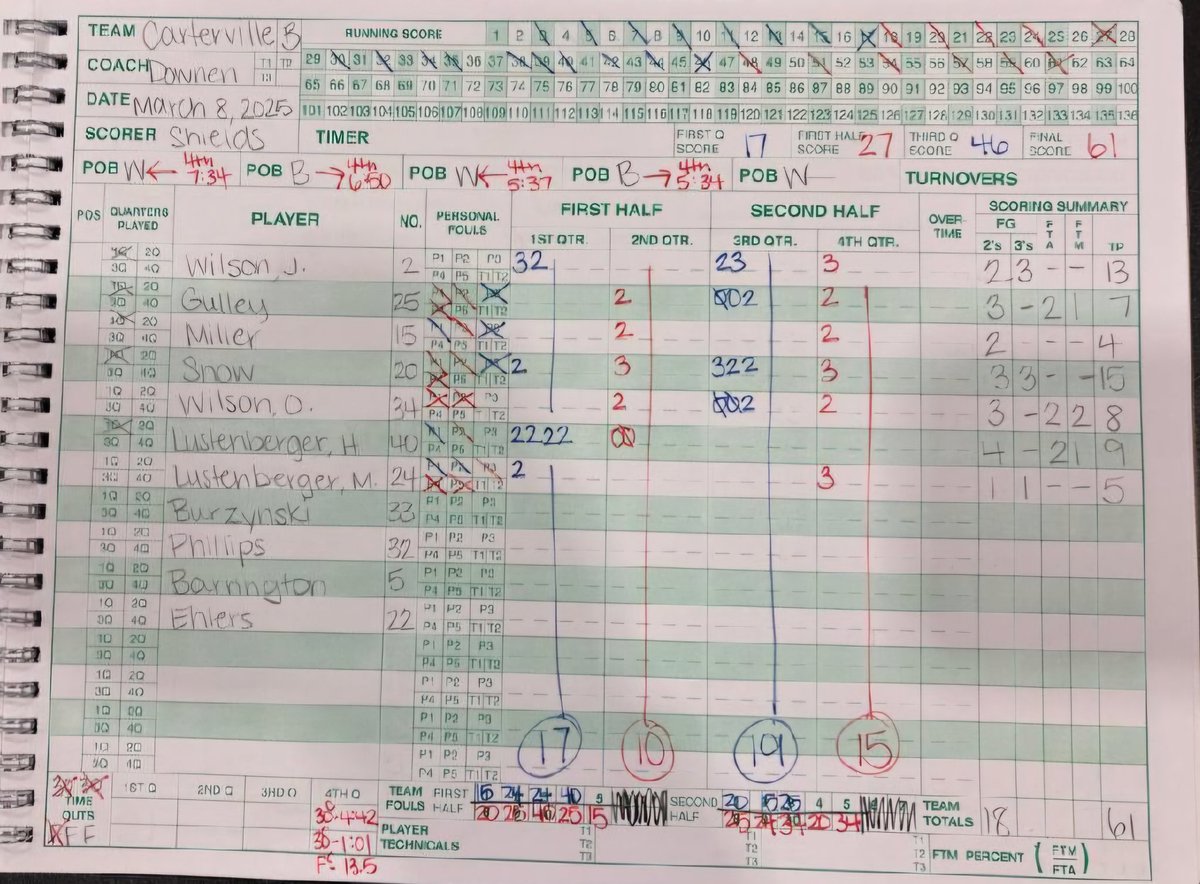 TEAM Carterville B RUNNING SCORE 1 2 3 4 5 6 7 8 9 10 11 12 13 14 15 16 17 18 19 20 21 22 23 24 25 26 27 28
COACH Downen T1 T2 T3 29 30 31 32 33 34 35 36 37 38 39 40 41 42 43 44 45 46 47 48 49 50 51 52 53 54 55 56 57 58 59 60 61 62 63 64
65 66 67 68 69 70 71 72 73 74 75 76 77 78 79 80 81 82 83 84 85 86 87 88 89 90 91 92 93 94 95 96 97 98 99 100
DATE March 8, 2025 101 102 103 104 105 106 107 108 109 110 111 112 113 114 115 116 117 118 119 120 121 122 123 124 125 126 127 128 129 130 131 132 133 134 135 136
SCORER Shields TIMER FIRST Q SCORE 17 FIRST HALF SCORE 27 THIRD Q SCORE 46 FINAL SCORE 61
POB W ← 4th 7:34 POB B → 4th 6:50 POB W ← 4th 5:37 POB B → 4th 5:34 POB W TURNOVERS
POS QUARTERS PLAYED PLAYER NO. PERSONAL FOULS FIRST HALF SECOND HALF OVER-TIME SCORING SUMMARY
1ST QTR. 2ND QTR. 3RD QTR. 4TH QTR. FG 2's 3's FTA FTM TP
1Q 2Q 3Q 4Q Wilson, J. 2 P1 P2 P3 P4 P5 T1 T2 32 23 3 2 3 - - 13
1Q 2Q 3Q 4Q Gulley 25 2 002 2 3 - 2 1 7
1Q 2Q 3Q 4Q Miller 15 2 2 2 - 4
1Q 2Q 3Q 4Q Snow 20 2 3 322 3 3 3 - - 15
1Q 2Q 3Q 4Q Wilson, O. 34 2 002 2 3 - 2 2 8
1Q 2Q 3Q 4Q Lustenberger, H. 40 2222 00 4 - 2 1 9
1Q 2Q 3Q 4Q Lustenberger, M. 24 2 3 1 1 - - 5
1Q 2Q 3Q 4Q Burzynski 33 P1 P2 P3 P4 P5 T1 T2
1Q 2Q 3Q 4Q Phillips 32 P1 P2 P3 P4 P5 T1 T2
1Q 2Q 3Q 4Q Barrington 5 P1 P2 P3 P4 P5 T1 T2
1Q 2Q 3Q 4Q Ehlers 22 P1 P2 P3 P4 P5 T1 T2
1Q 2Q 3Q 4Q P1 P2 P3 P4 P5 T1 T2
1Q 2Q 3Q 4Q P1 P2 P3 P4 P5 T1 T2
1Q 2Q 3Q 4Q P1 P2 P3 P4 P5 T1 T2
1Q 2Q 3Q 4Q P1 P2 P3 P4 P5 T1 T2
17 10 19 15
TIME OUTS 1ST Q 2ND Q 3RD Q 4TH Q TEAM FOULS FIRST HALF 15 24 24 40 5 SECOND HALF 20 15 25 4 5 TEAM TOTALS 18 61
FF 38-4:42 20 25 40 25 15 25 24 34 20 34
38-1:01 PLAYER TECHNICALS T1 T2 T3 T1 T2 T3 T1 T2 T3 FTM PERCENT (FTM/FTA)
F- 13.5